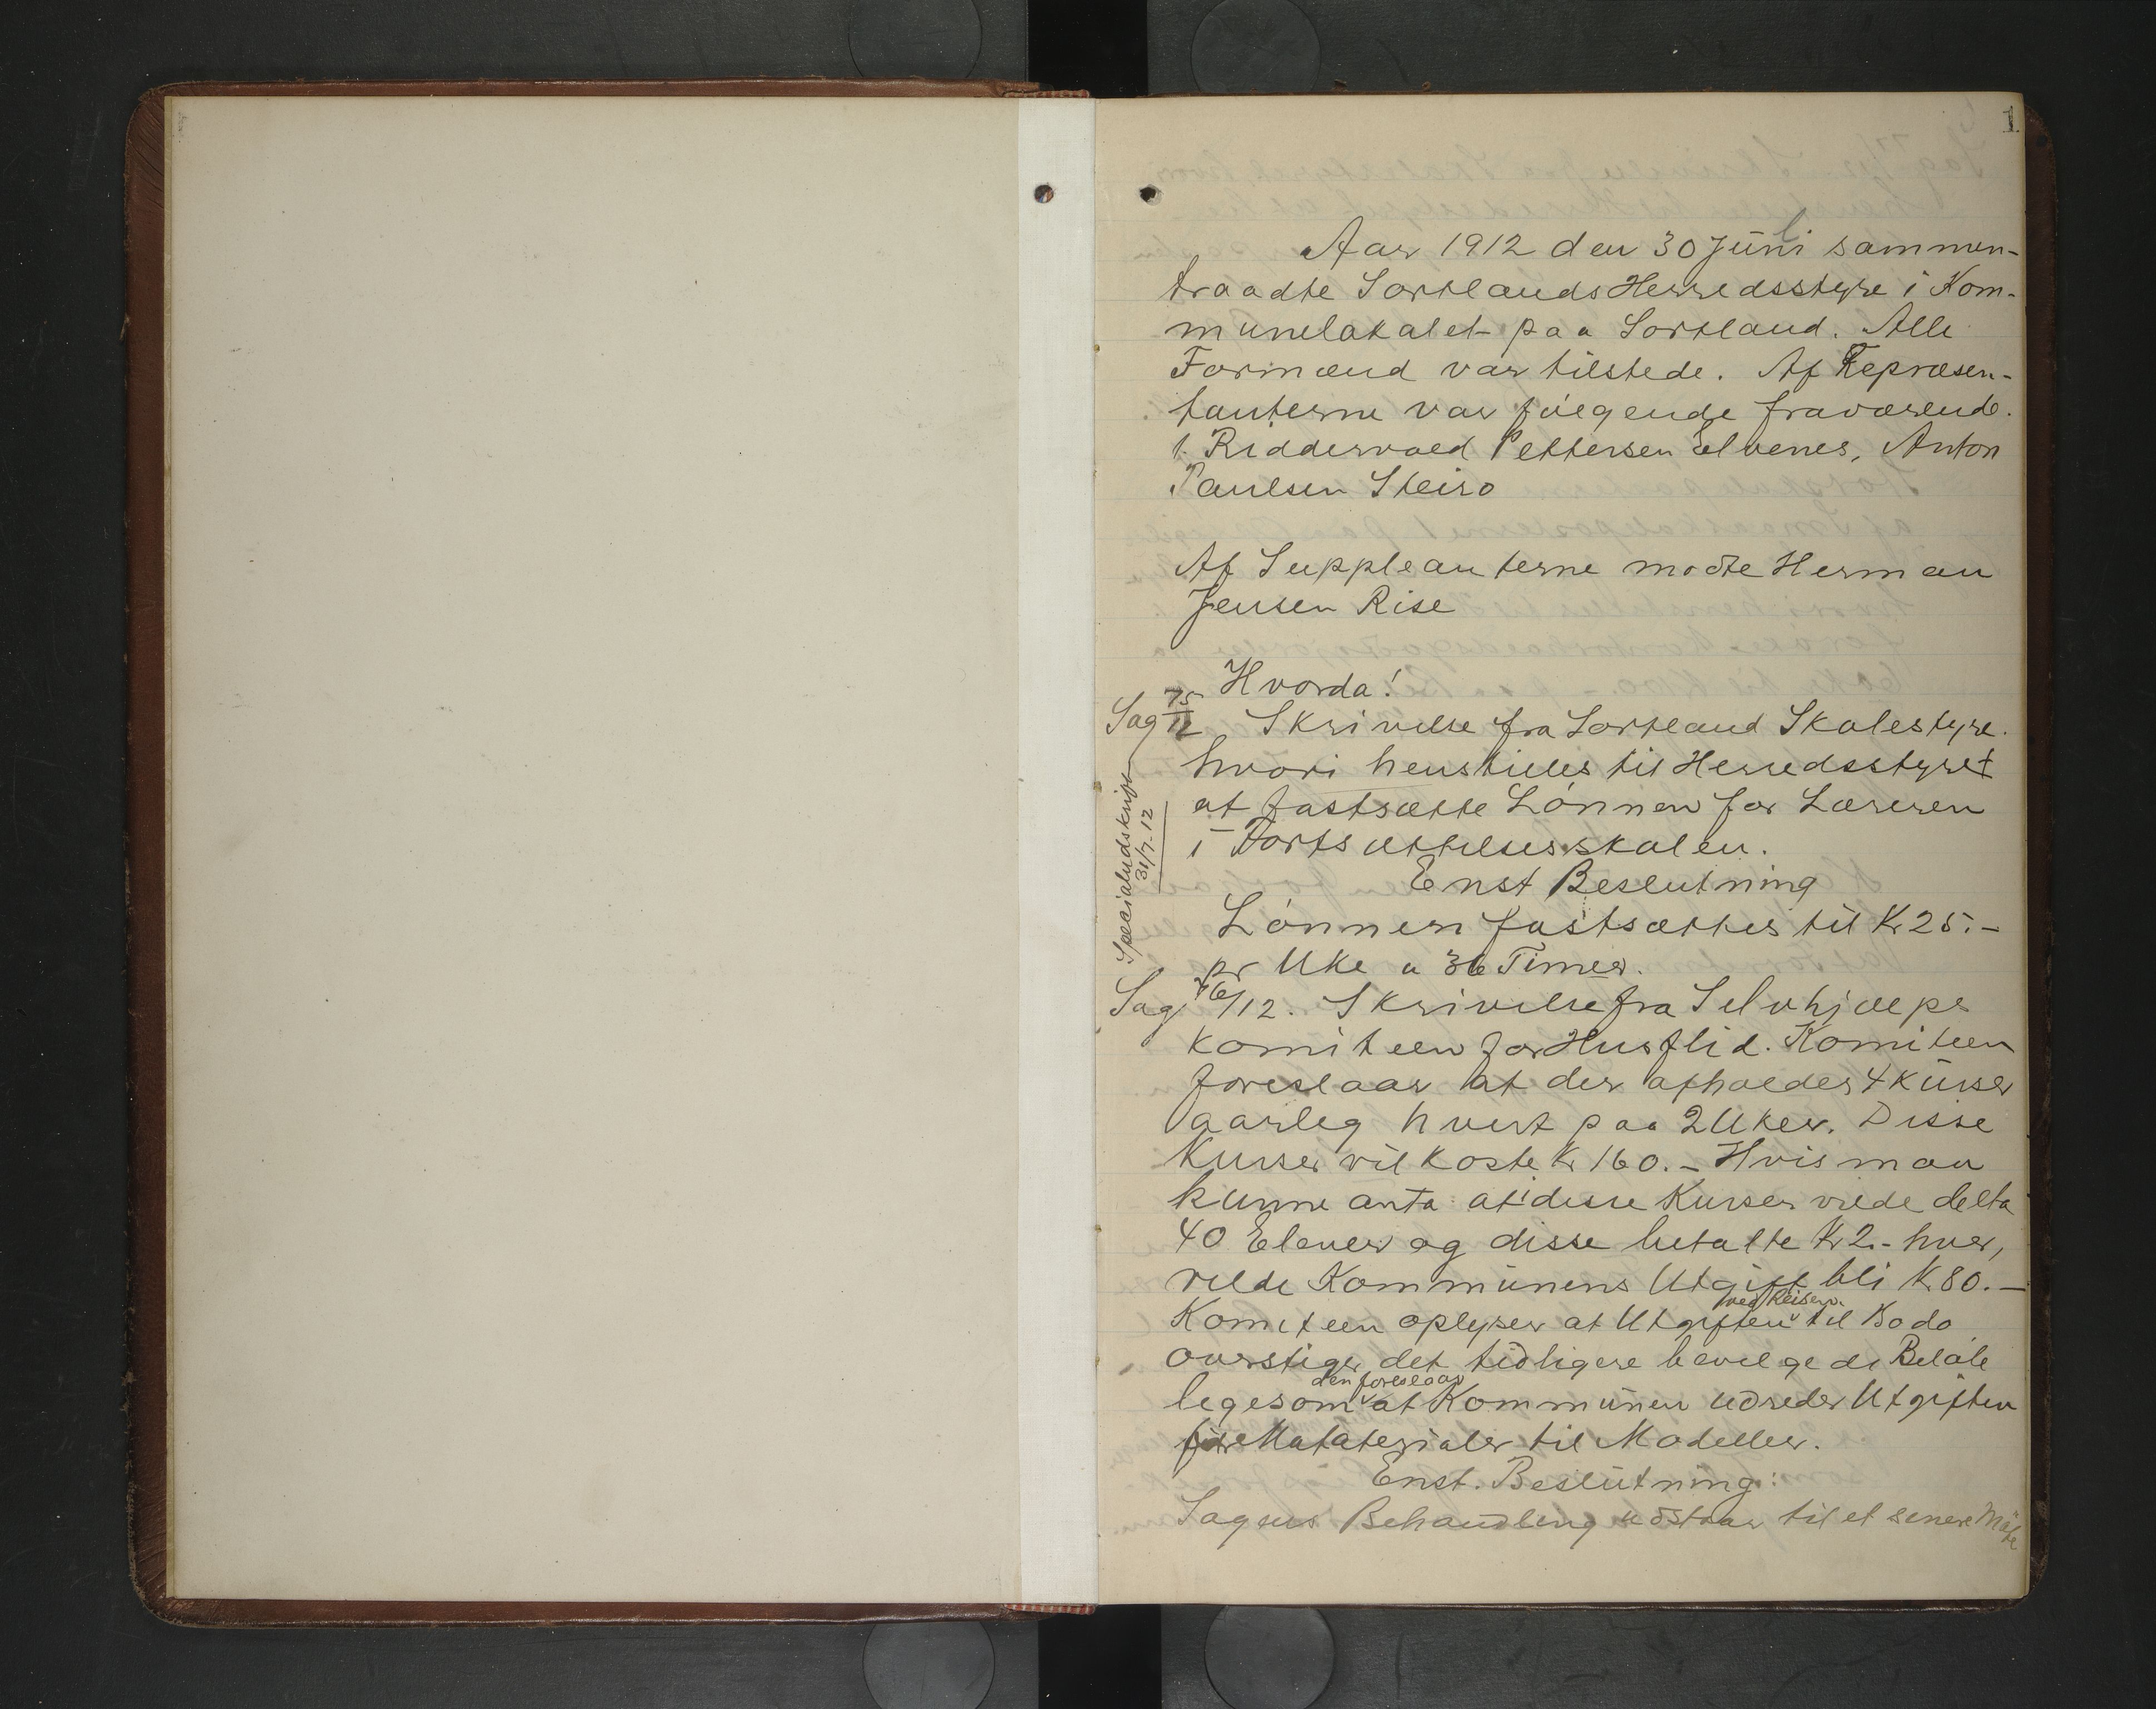 1
Aar 1912 den 30 Juli sammen-
traadte Sortlands Herredsstyre i Kom-
munelokalet paa Sortland. Alle
Formænd var tilstede. Af Repræsen-
tanterne var følgende fraværende.
1. Riddervold Pettersen Elvenes, Anton
Paulsen Steiro
Af Suppleanterne mødte Herman
Jensen Rise
Hvorda!
Sag 75/12 Skrivelse fra Sortland Skolestyre.
hvori henstilles til Herredsstyret
at fastsætte Lønnen for Læreren
i Fortsættelsesskolen.
Specialudskrift
31/7-12
Enst Beslutning
Lønnen fastsættes til Kr 25.-
pr Uke a 36 Timer.
Sag 76/12. Skrivelse fra Selvhjælps
komiteen for Husflid. Komiteen
foreslaar at der afholdes 4 Kurser
aarleg hvert paa 2 Uker. Disse
Kurser vil koste Kr 160.- Hvis man
kunne anta at disse Kurser vilde delta
40 Elever og disse betalte Kr 2.- hver,
vilde Kommunens Utgift bli Kr. 80.-
Komiteen oplyser at Utgiften ved Reisen til Bodø
overstiger det tidligere bevilgede Beløb
ligesom den foreslaar at Kommunen udreder Utgiften
for Mataterialer til Modeller.
Enst. Beslutning:
Sagens Behandling udstaar til et senere Møte